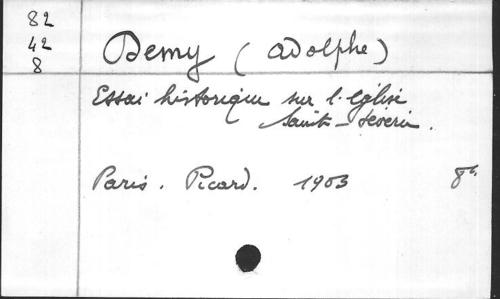 82
42
8
Demy (Adolphe)
Essai historique sur l'église
Saint-Séverin.
Paris. Picard. 1903 8°